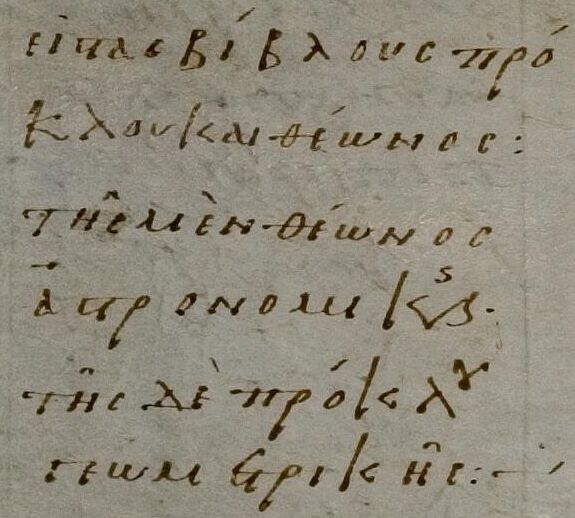 εἰ τὰς βίβλους πρό
κλου καὶ θέωνος:
τῆς μὲν θέωνος
ἀστρονομικῆς·
τῆς δὲ πρόκλου
γεωμετρικῆς: